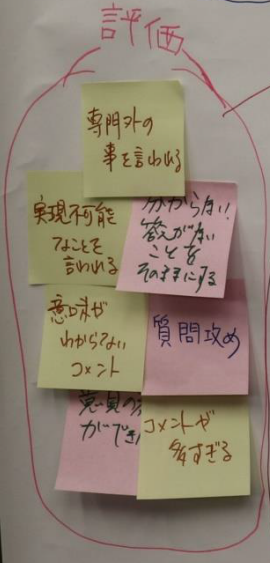 評価
専門外の
事を言われる
実現不可能
なことを
言われる
分からない!
答えがない
ことを
そのままにする
意味が
わからない
コメント
質問攻め
意見の
ができ
コメントが
多すぎる